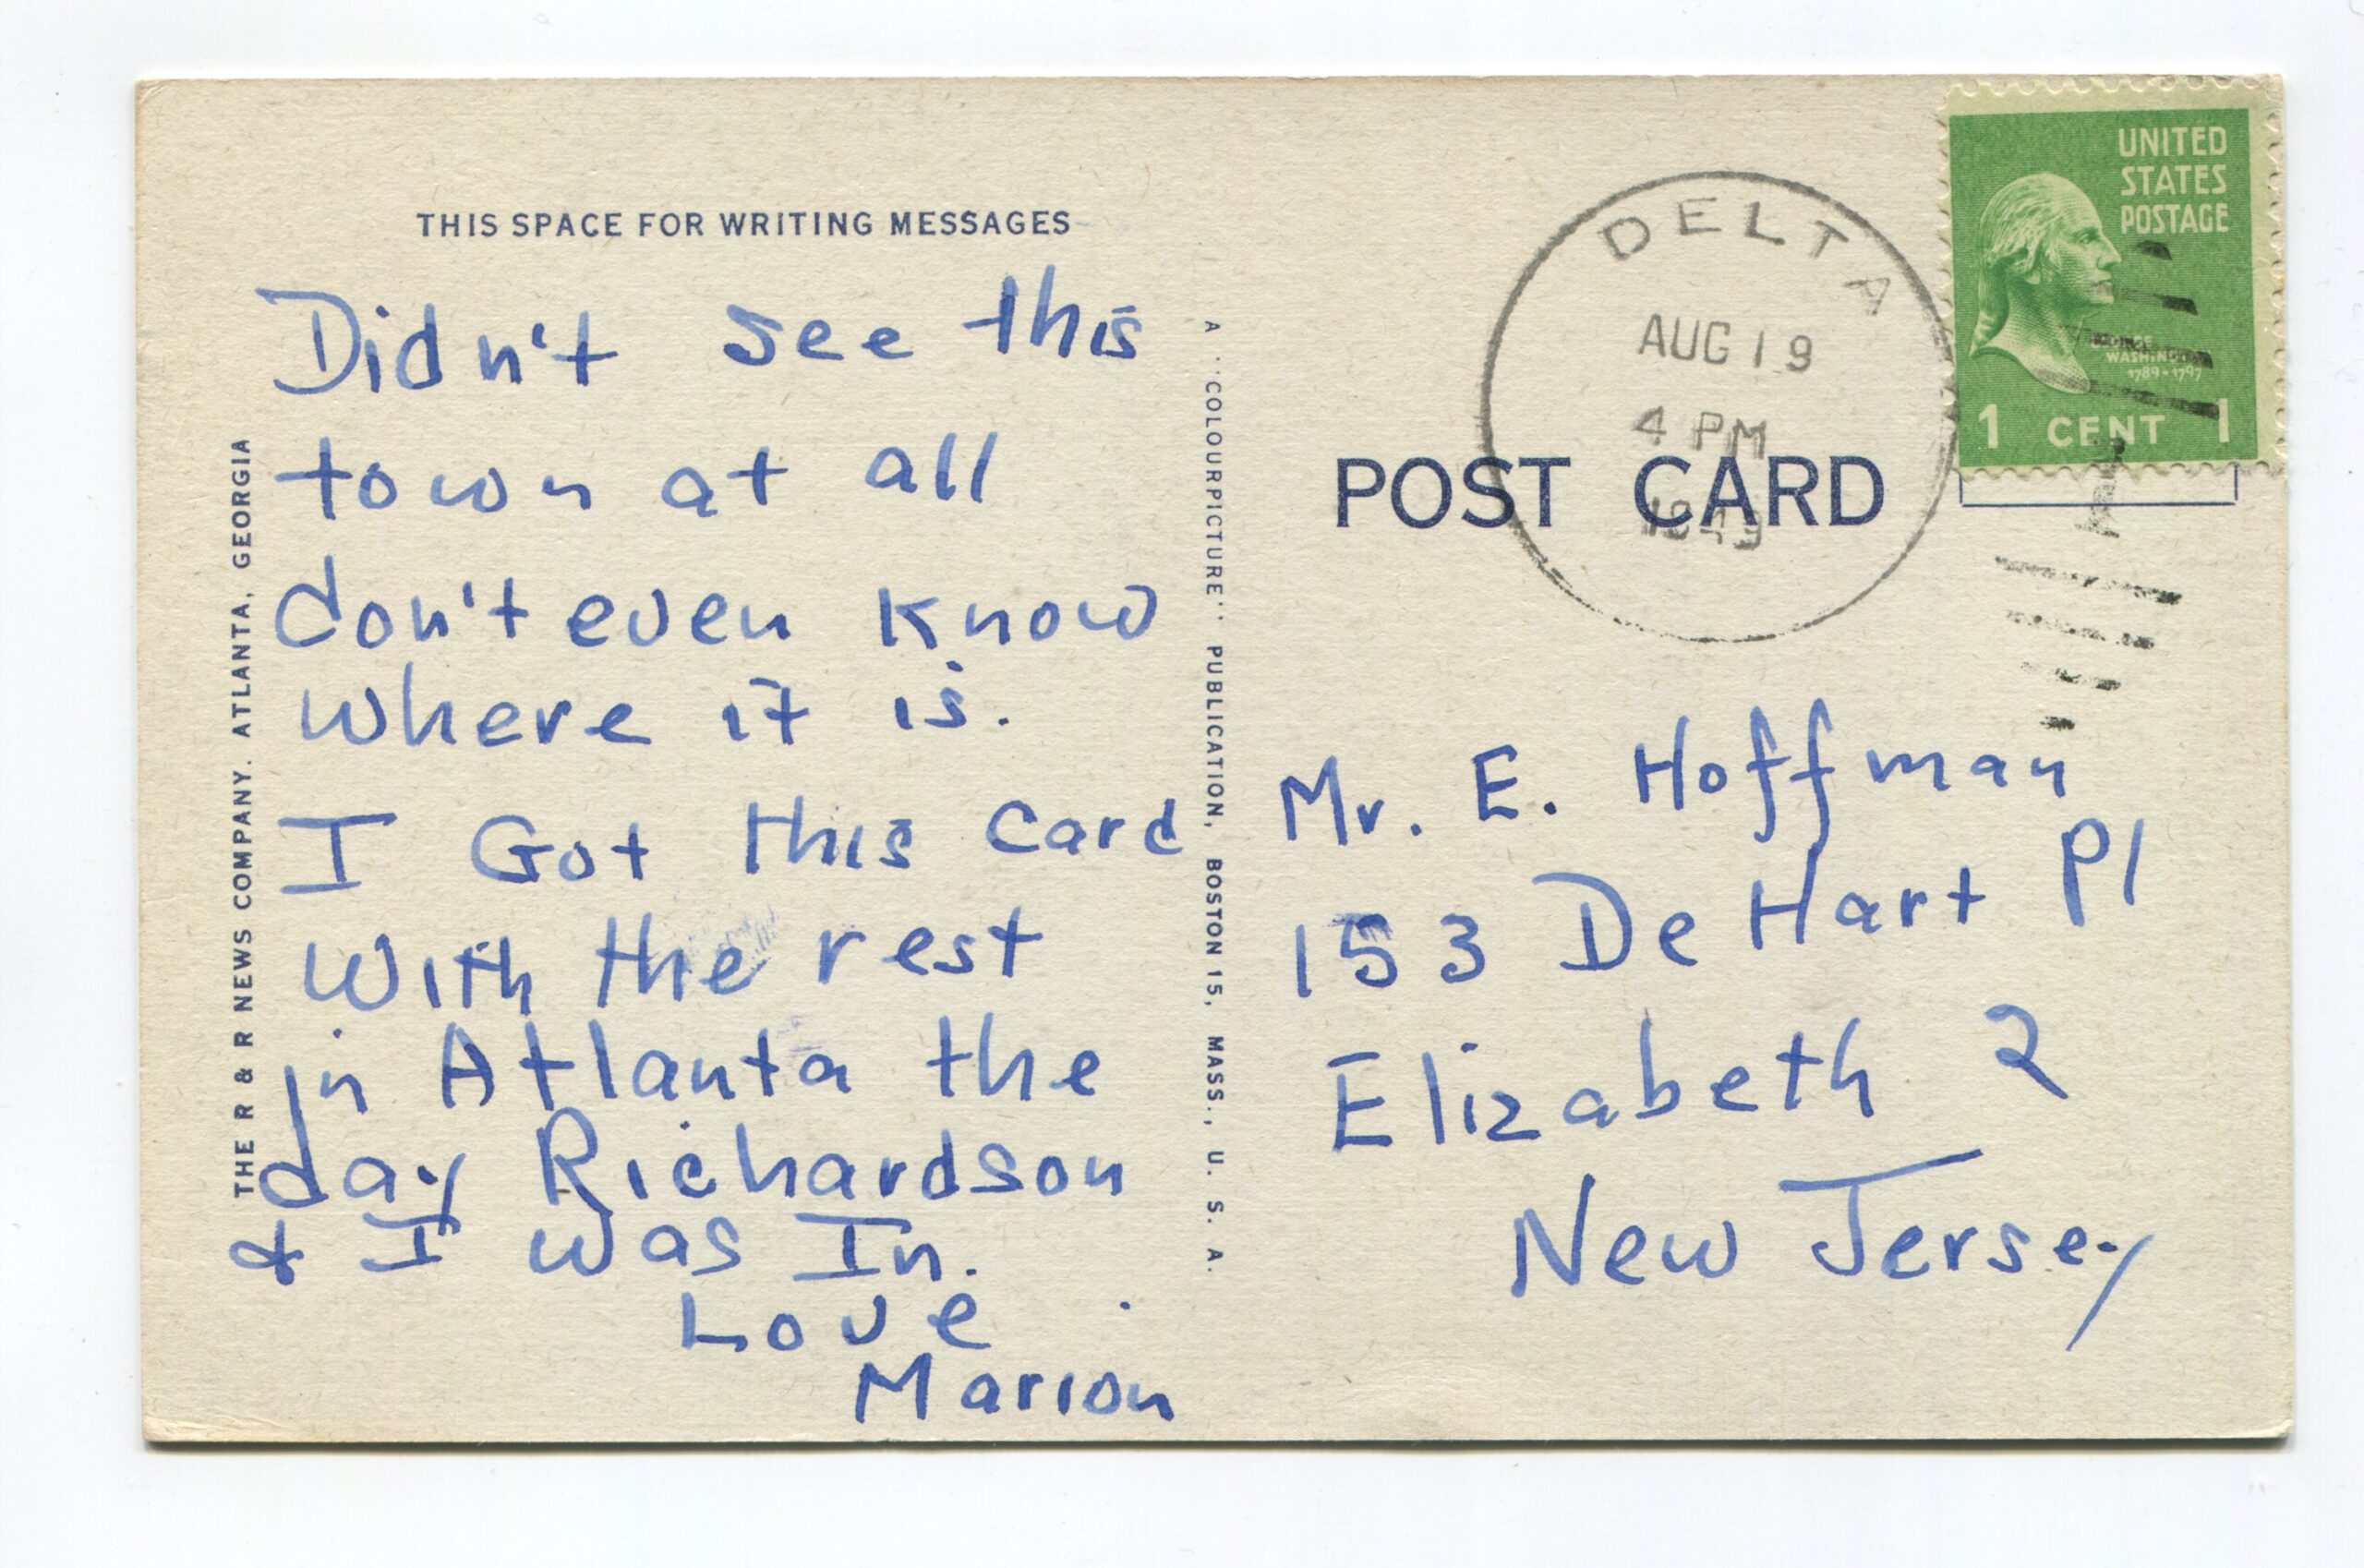 THIS SPACE FOR WRITING MESSAGES
Didn't see this
town at all
don't even know
where it is.
I Got this card
with the rest
in Atlanta the
day Richardson
& I was In.
Love
Marion
THE R & R NEWS COMPANY. ATLANTA, GEORGIA
A "COLOURPICTURE" PUBLICATION, BOSTON 15, MASS., U. S. A.
DELTA
AUG 19
4 PM
1949
UNITED
STATES
POSTAGE
GEORGE
WASHINGTON
1789-1797
1 CENT 1
POST CARD
Mr. E. Hoffman
153 De Hart Pl
Elizabeth 2
New Jersey